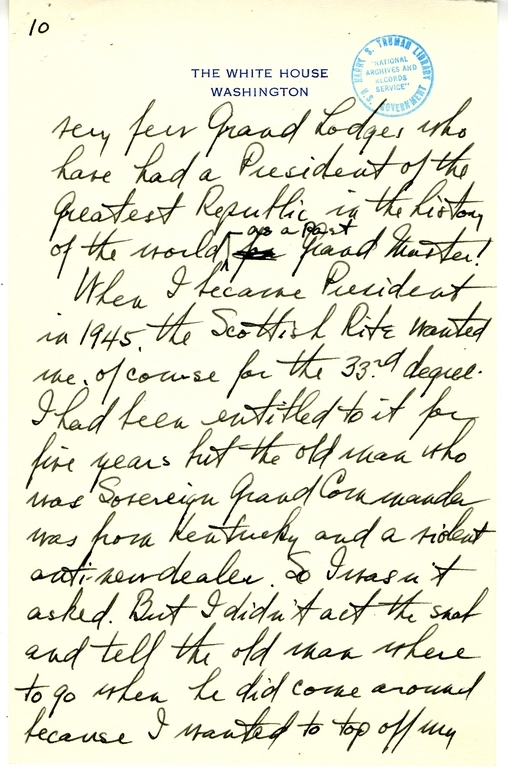 10
THE WHITE HOUSE
WASHINGTON
HARRY S. TRUMAN LIBRARY
"NATIONAL
ARCHIVES AND
RECORDS
SERVICE"
U.S. GOVERNMENT
very few Grand Lodges who
have had a President of the
Greatest Republic in the history
as a Past
of the world, for Grand Master!
When I became President
in 1945, the Scottish Rite wanted
me, of course for the 33rd degree.
I had been entitled to it for
five years but the old man who
was Sovereign Grand Commander
was from Kentucky and a violent
anti-newdealer. So I wasn't
asked. But I didn't act the snob
and tell the old man where
to go when he did come around
because I wanted to top off my